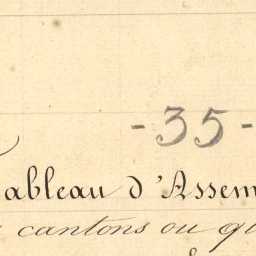 - 35 -
Tableau d'Assem
cantons ou qu